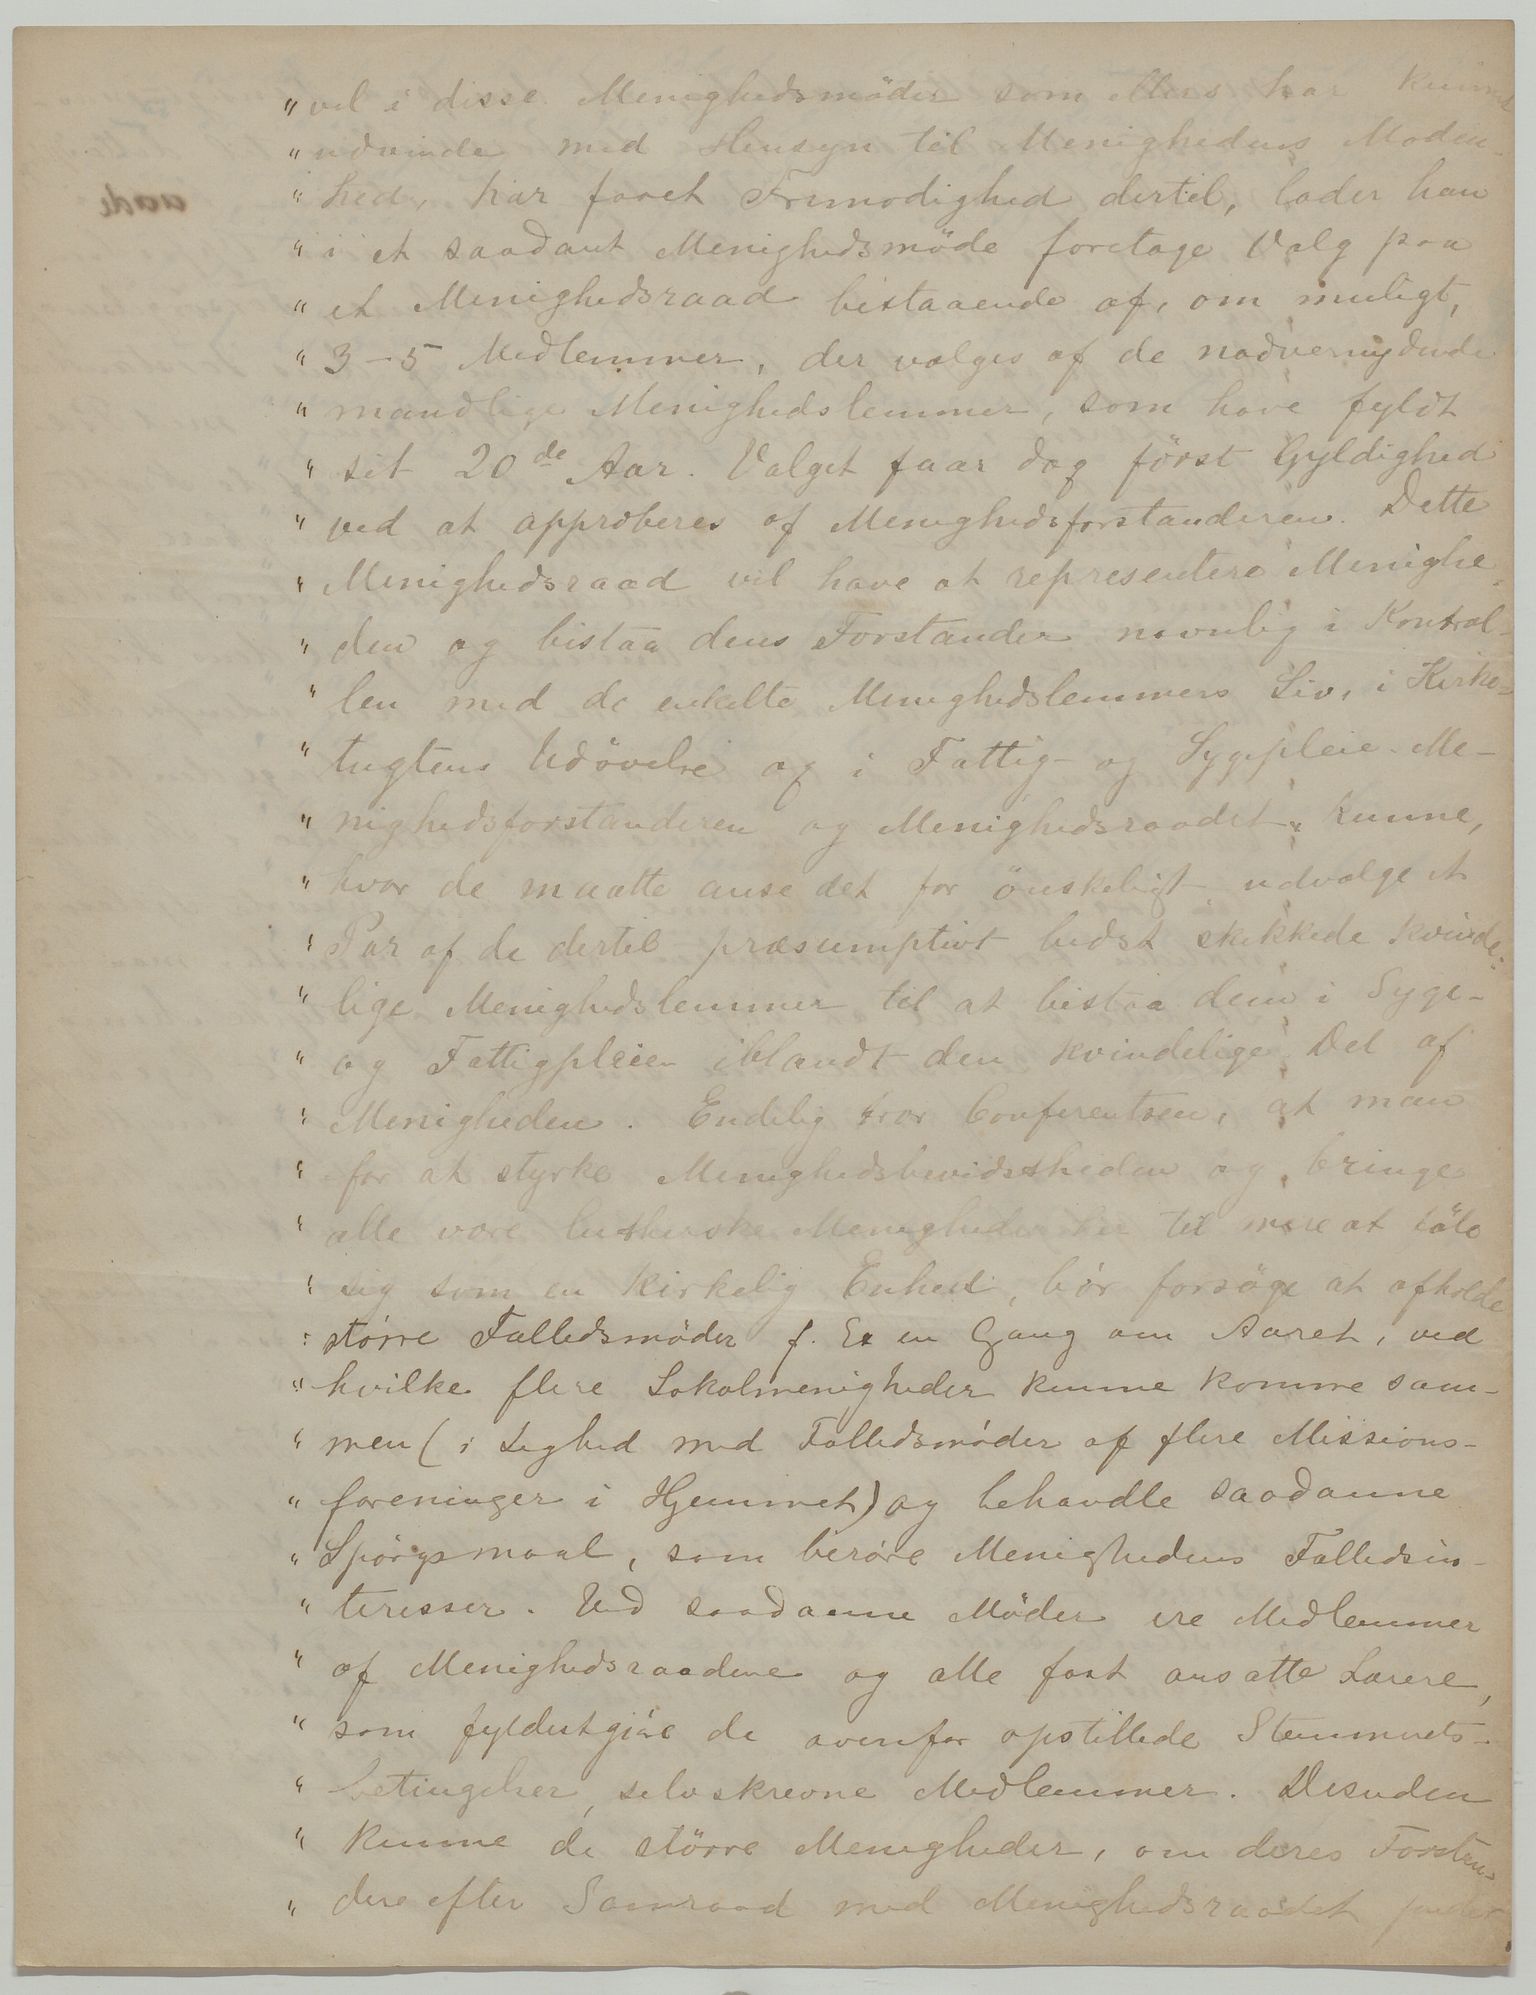 " vel i disse Menighedsmöder som ellers har kunnet
" udvinde med Hensyn til Menighedens Moden-
" hed, har faaet Frimodighed dertil, lader han
" i et saadant Menighedsmöde foretage Valg paa
" et Menighedsraad bestaaende af, om muligt,
" 3-5 Medlemmer, der vælges af de nadvernydende
" mandlige Menighedslemmer, som have fyldt
" sit 20de Aar. Valget faar dog först Gyldighed
" ved at approberes af Menighedsforstanderen. Dette
" Menighedsraad vil have at representere Menighe-
" den og bistaa dens Forstander navnlig i Kontrol-
" len med de enkelte Menighedslemmers Liv, i Kirke-
" tugtens Udövelse og i Fattig- og Sygepleie. Me-
" nighedsforstanderen og Menighedsraadet kunne,
" hvor de maatte anse det for önskeligt udvælge et
" Par af de dertil præsumptivt bedst skikkede kvinde-
" lige Menighedslemmer til at bistaa dem i Syge-
" og Fattigpleien iblandt den kvindelige Del af
" Menigheden. Endelig tror Conferentsen, at man
" for at styrke Menighedsbevidstheden og bringe
" alle vore lutherske Menigheder her til mere at föle
" sig som en kirkelig Enhed, bör forsöge at afholde
" större Fællesmöder f. Ex en Gang om Aaret, ved
" hvilke flere Lokalmenigheder kunne komme sam-
" men (i Lighed med Fællesmöder af flere Missions-
" foreninger i Hjemmet) og behandle saadanne
" Spörgsmaal, som beröre Menighedens Fællesin-
" teresser. Ved saadanne Möder ere Medlemmer
" af Menighedsraadene og alle fast ansatte Lærere,
" som fyldestgjöre de ovenfor opstillede Stemmerets-
" betingelser, selvskrevne Medlemmer. Desuden
" kunne de större Menigheder, om deres Forstan-
" dere efter Samraad med Menighedsraadet finder